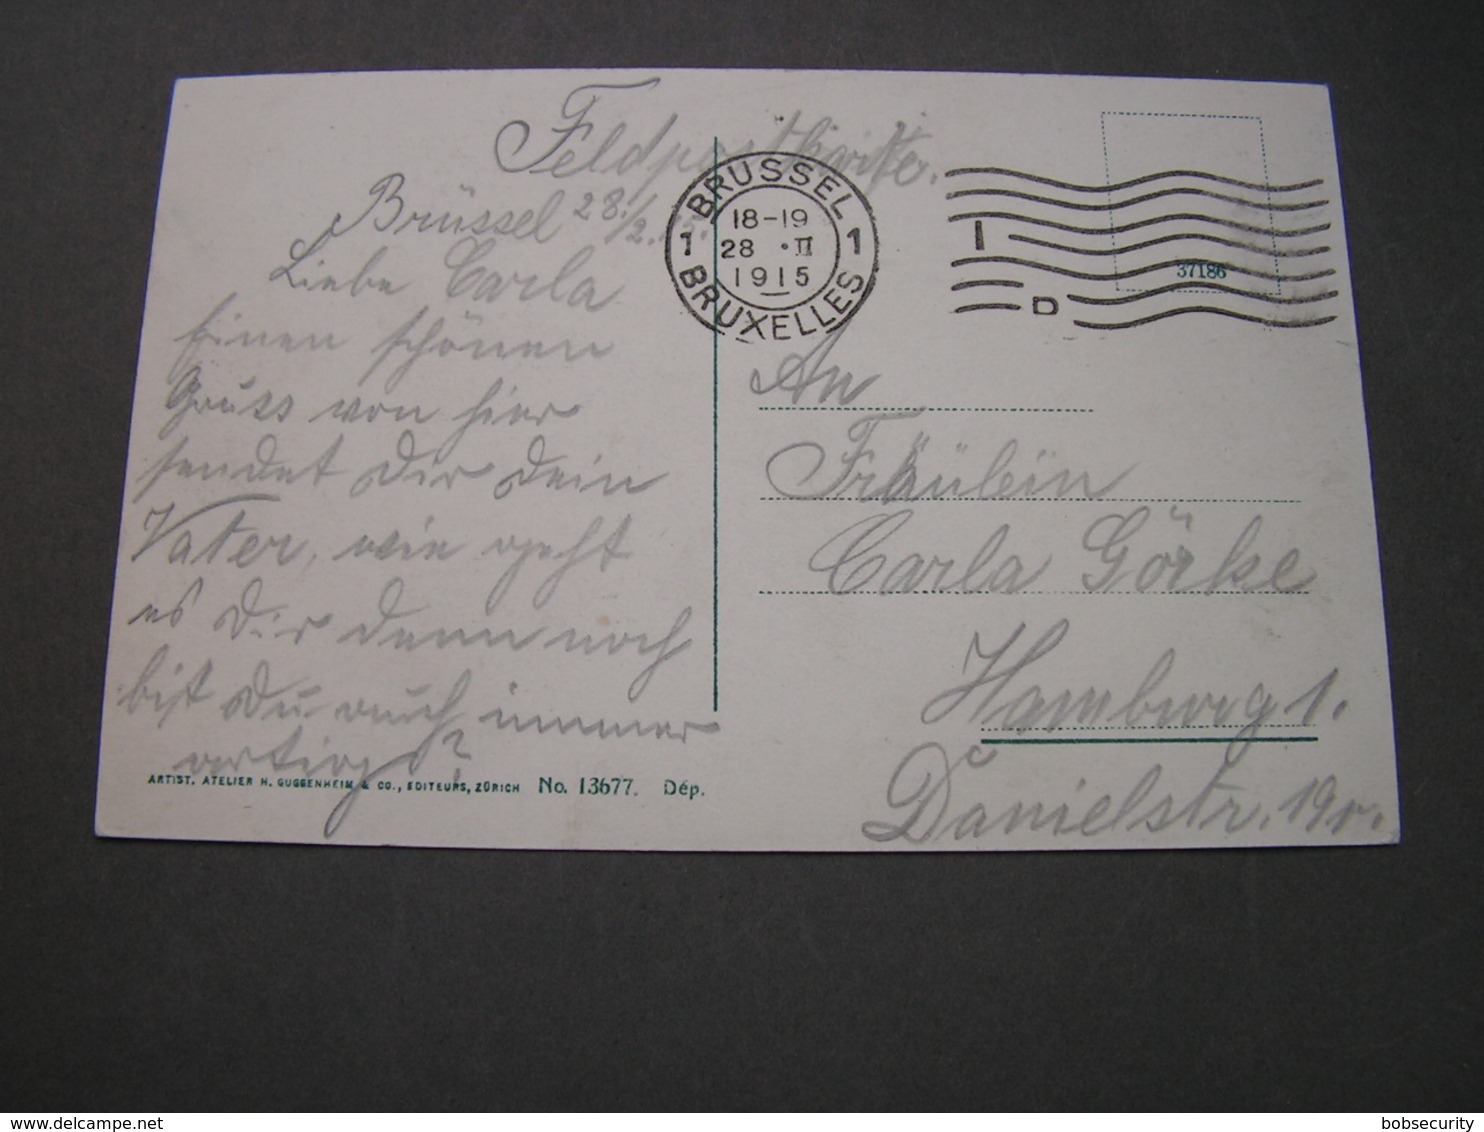 Feldpostkarte.
Brüssel 28./2. 15.
Liebe Carla
Einen schönen
Gruss von hier
sendet Dir Dein
Vater, wie geht
es Dir denn noch
bist Du auch immer
artig?
ARTIST. ATELIER H. GUGGENHEIM & CO., EDITEURS, ZÜRICH No. 13677. Dép.
BRUSSEL
18-19
1 28 · II 1
1915
BRUXELLES
1
D
37186
An
Fräulein
Carla Görke
Hamburg 1.
Danielstr. 19r.
bobsecurity